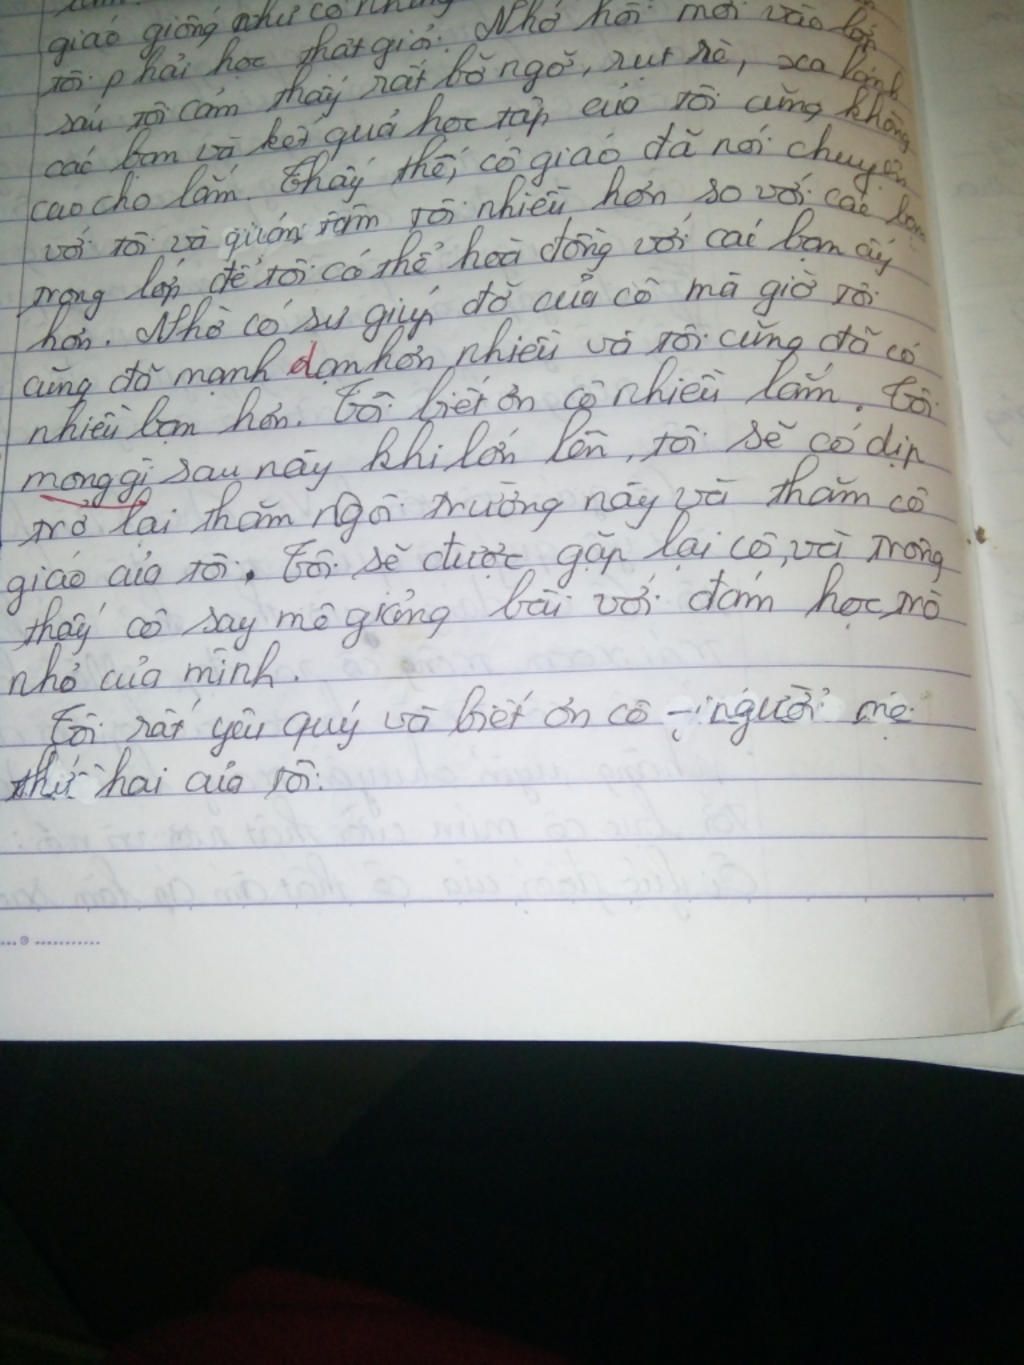 giáo giống như có
tôi phải học thật giỏi. Nhớ hồi mới vào lớp
sáu tôi cảm thấy rất bỡ ngỡ, rụt rè, xa lánh
các bạn và kết quả học tập của tôi cũng không
cao cho lắm. Thấy thế, cô giáo đã nói chuyện
với tôi và quan tâm tôi nhiều hơn so với các bạn
trong lớp để tôi có thể hoà đồng với các bạn ấy
hơn. Nhờ có sự giúp đỡ của cô mà giờ tôi
cũng đã mạnh dạn hơn nhiều và tôi cũng đã có
nhiều bạn hơn. Tôi biết ơn cô nhiều lắm. Tôi
mong gì sau này khi lớn lên, tôi sẽ có dịp
trở lại thăm ngôi trường này và thăm cô
giáo của tôi. Tôi sẽ được gặp lại cô, và trông
thấy cô say mê giảng bài với đám học trò
nhỏ của mình.
Tôi rất yêu quý và biết ơn cô - người mẹ
thứ hai của tôi.